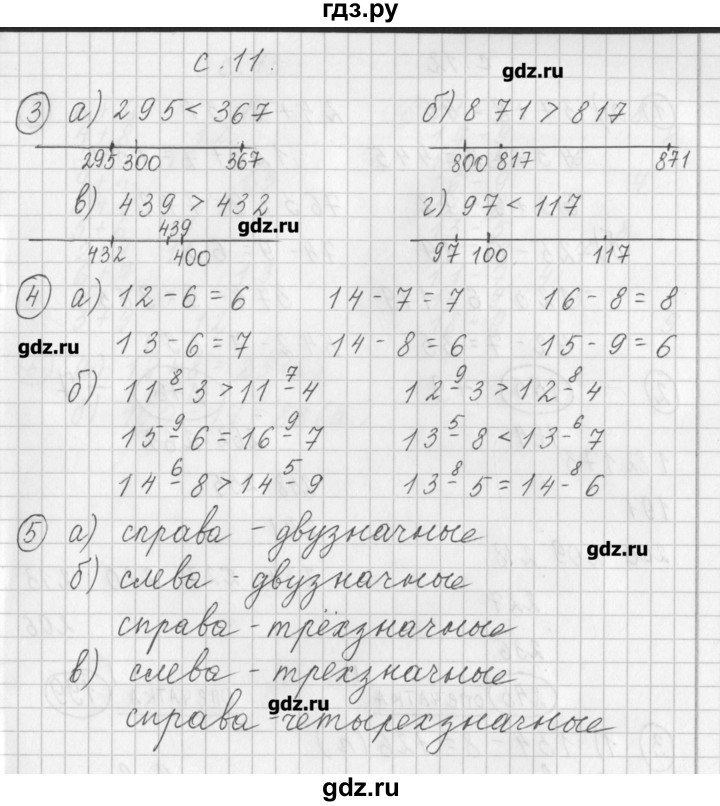 гдз.ру
с. 11.
gdz.ru
3 а) 295 < 367 б) 871 > 817
295 300 367 800 817 871
в) 439 > 432 г) 97 < 117
gdz.ru
439
432 400 97 100 117
4 а) 12 - 6 = 6 14 - 7 = 7 16 - 8 = 8
gdz.ru 13 - 6 = 7 14 - 8 = 6 15 - 9 = 6
8 7 9 8
б) 11 - 3 > 11 - 4 12 - 3 > 12 - 4
9 9 5 6
15 - 6 = 16 - 7 13 - 8 < 13 - 7
6 5 8 8
14 - 8 > 14 - 9 13 - 5 = 14 - 6
5 а) справа - двузначные
gdz.ru
б) слева - двузначные
справа - трёхзначные
в) слева - трехзначные
gdz.ru
справа - четырехзначные
gdz.ru